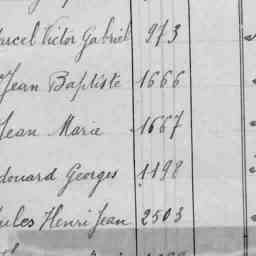 arcel Victor Gabriel 973
Jean Baptiste 1666
Jean Marie 1667
douard Georges 1198
ules Henri Jean 2503